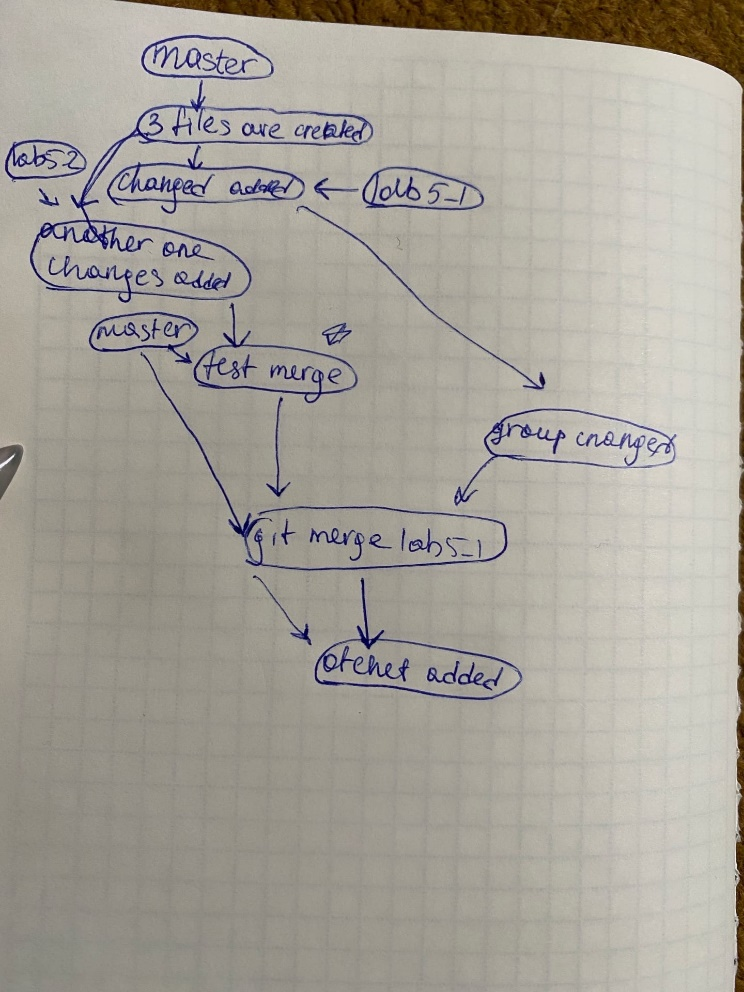 master
3 files are created
lab5-2
changed added
lab5-1
another one
changes added
master
test merge
group changes
git merge lab5-1
otchet added